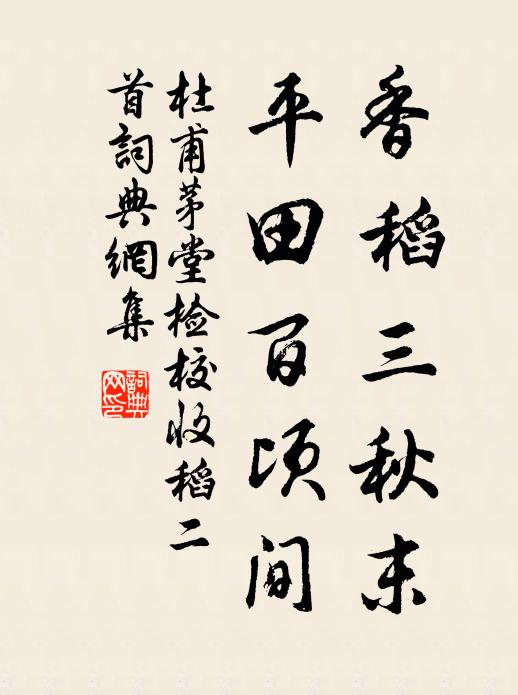 香稻三秋末
平田百頃间
杜甫茅堂检校收稻二
首詞典網集
詞典
网印